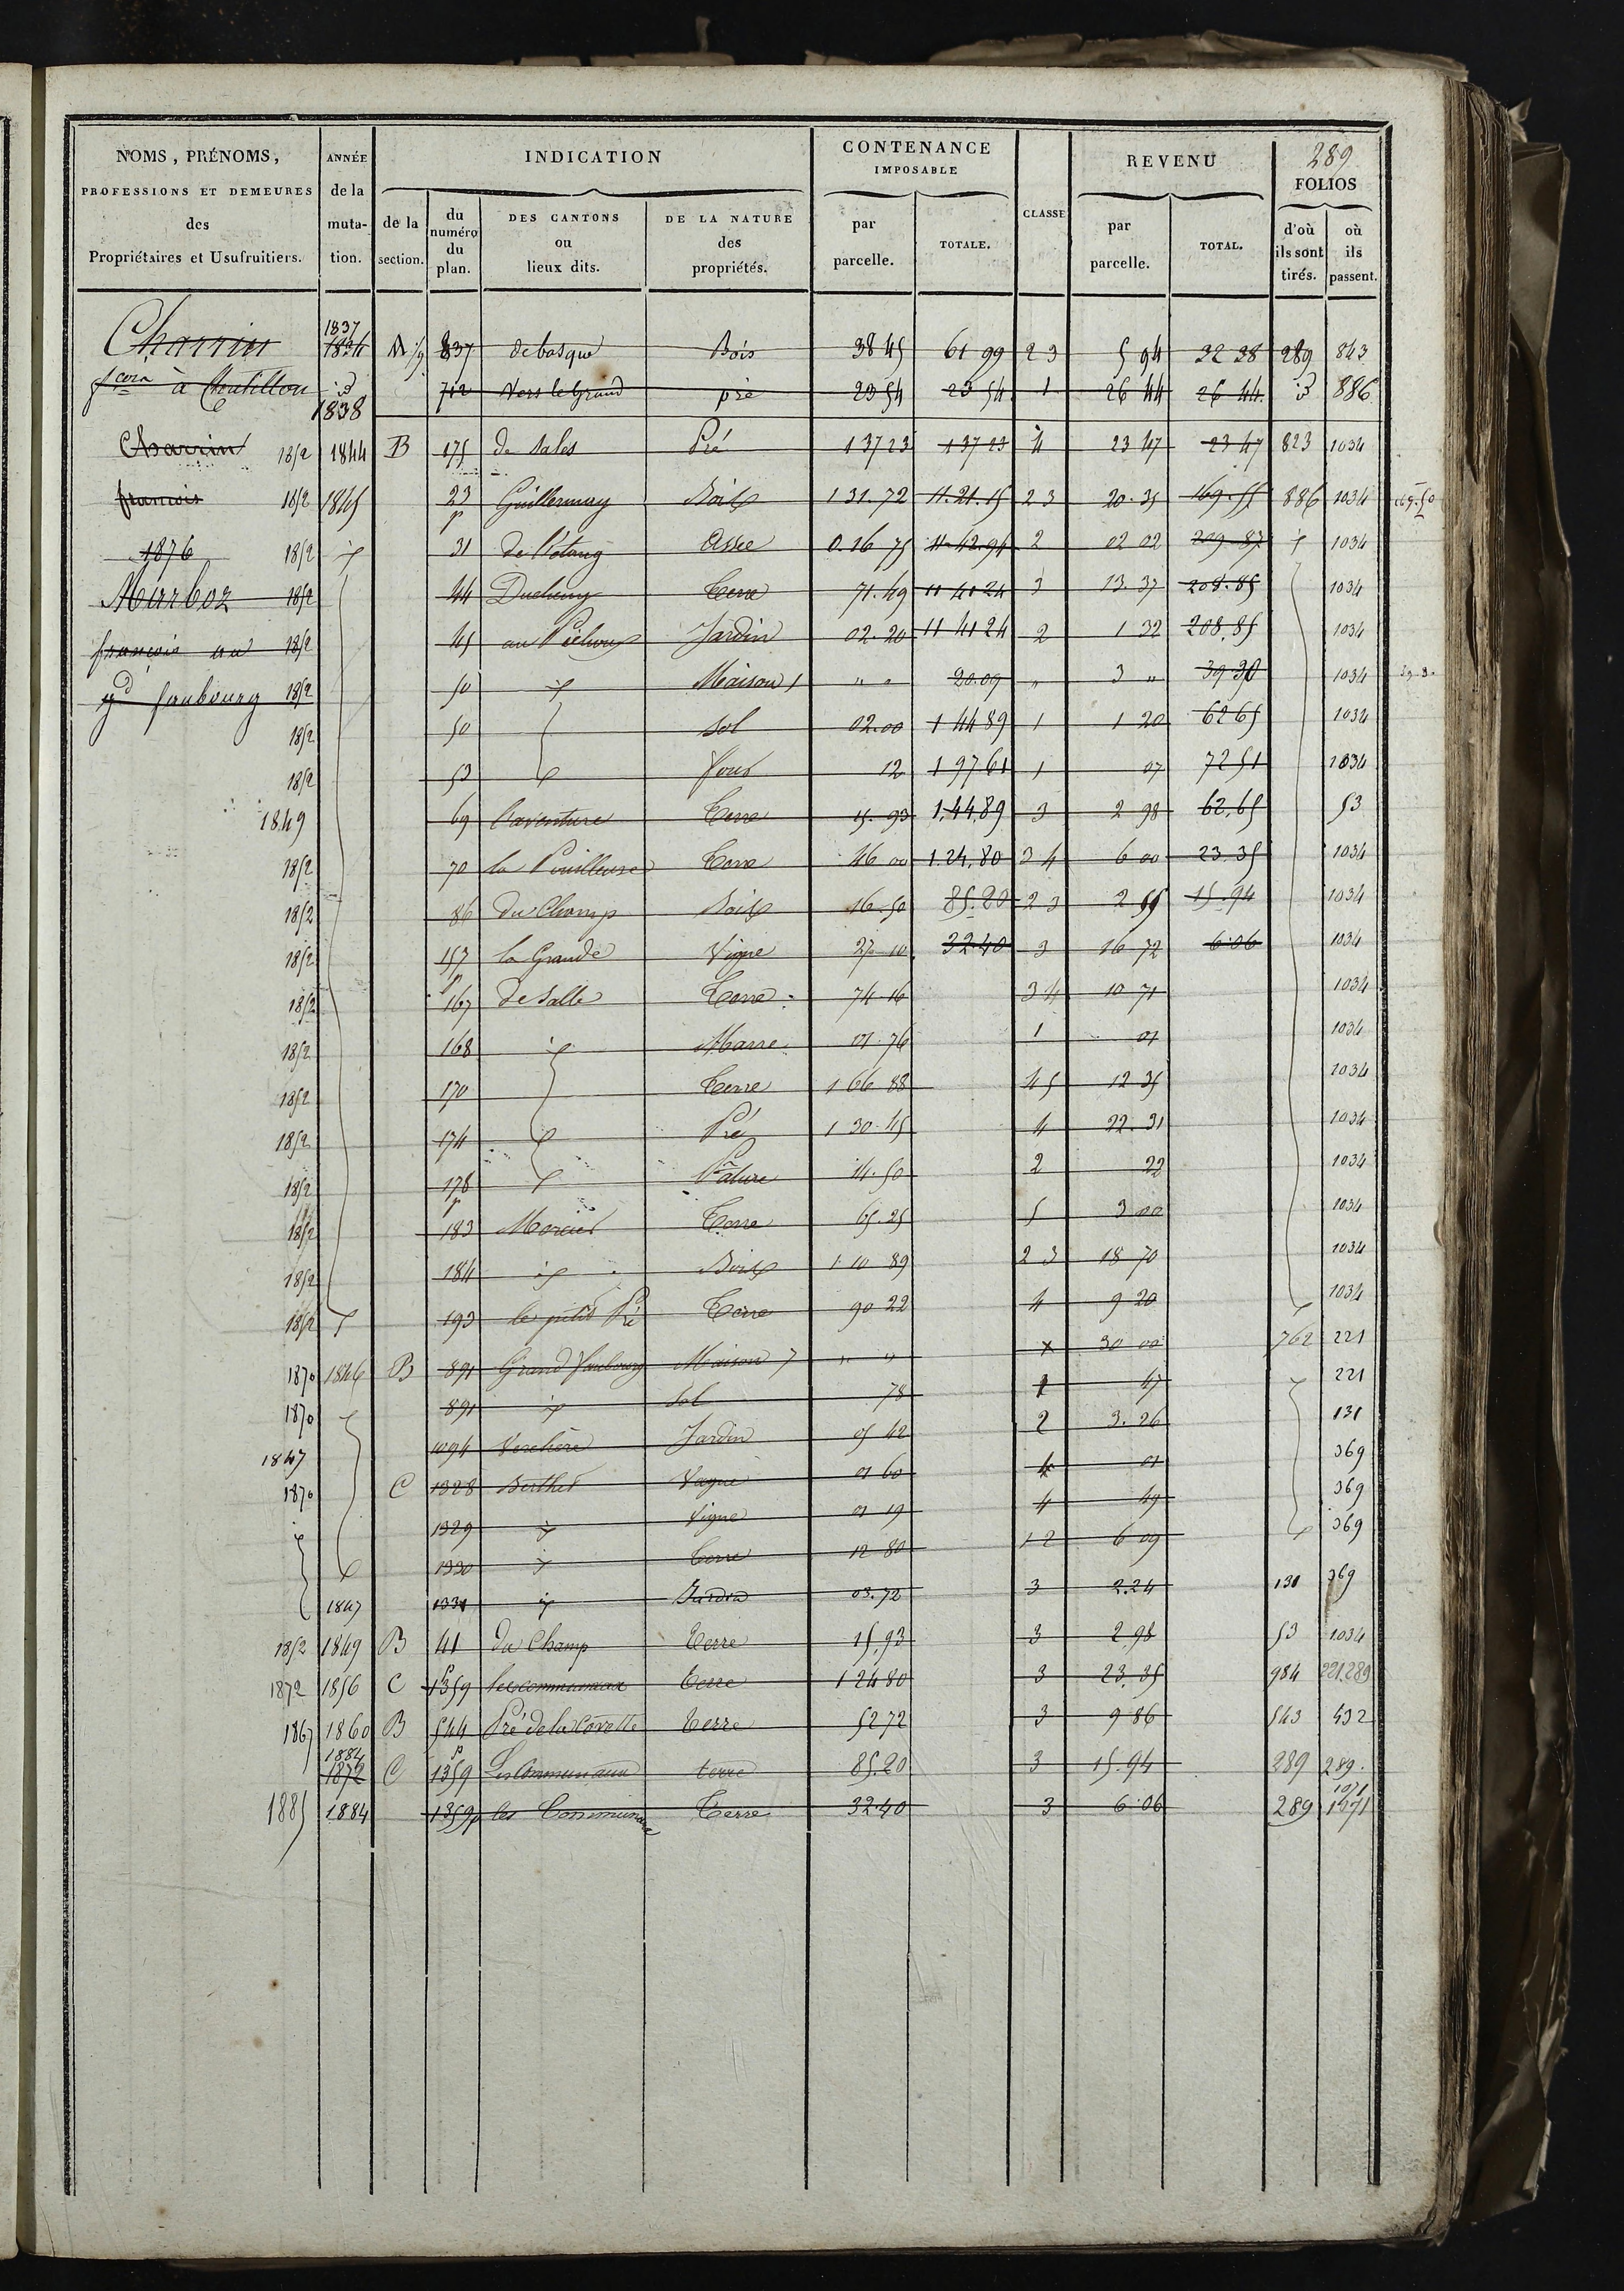 289
NOMS, PRÉNOMS, PROFESSIONS ET DEMEURES des Propriétaires et Usufruitiers.
ANNÉE de la mutation.
INDICATION
de la section.
du numéro du plan.
DES CANTONS ou lieux dits.
DE LA NATURE des propriétés.
CONTENANCE IMPOSABLE
par parcelle.
TOTALE.
CLASSE
REVENU
par parcelle.
TOTAL.
FOLIOS
d'où ils sont tirés.
où ils passent.
Charrin 1837 837 Bois 38 45 61 99 2 3 5 94 32 38 289 843
à Chatillon id 1838 712 Vers le Grand pré 23 54 23 54 1 26 44 26 44 id 886
Charrin 1852 1844 B 175 de Sales Pré 1 37 23 1 37 23 4 23 47 23 47 823 1034
francois 1852 1845 23 p Guillermay Bois 1 31.72 11.21.15 2 3 20.35 169.55 886 1034
1876 1852 31 De l'étang 0.16 75 11.42.94 2 02 02 209 87 1034
Marboz 1852 44 Terre 71.49 11 41 24 3 13.37 208.85 1034
françois au 1852 45 Jardin 02.20 11 41 24 2 1 32 208.85 1034
gd faubourg 1852 50 Maison 1 " " 20.09 " 3 " 39 30 1034
1852 50 sol 02.00 1 44 89 1 1 20 62 65 1034
1852 53 four 12 1 97 61 1 07 72 51 1034
1849 69 l'aventure Terre 15.93 1,44,89 3 2 98 62,65 53
1852 70 Terre 46 00 1.24,80 3 4 6 00 23.35 1034
1852 86 Du Champ Bois 16.50 85.20 2 3 2 55 15.94 1034
1852 157 p la Grande Vigne 27 10 32.40 3 16 72 6.06 1034
1852 167 de Salle Terre 74 16 3 4 10 71 1034
1852 168 Marre 01.76 1 01 1034
1852 170 Terre 1 66 88 4 5 12 35 1034
1852 174 Pré 1 30.45 4 22.31 1034
1852 178 p Pâture 14.50 2 22 1034
1852 183 Terre 65.25 5 3 00 1034
1852 184 Bois 1 10 89 2 3 18 70 1034
1852 193 le petit Pré Terre 90 22 4 9 20 1034
1870 1846 B 891 Grand faubourg Maison 7 " " x 30 00 762 221
1870 891 Sol 78 1 47 221
1847 1094 Verchère Jardin 05 42 2 3.26 131
1870 C 1328 Berthet Vague 01 60 4 01 369
1329 Vigne 01 19 4 49 369
1330 Terre 12 80 1 2 6 09 369
1847 1331 Jardin 03.72 3 2.24 131 369
1852 1849 B 41 du Champ Terre 15,93 3 2.98 53 1034
1872 1856 C 1359 p les communaux Terre 1 24 80 3 23.35 984 221.289
1867 1860 B 544 Pré de la Covette Terre 52 72 3 9 86 543 432
1884 1872 C 1359 p Les Communaux terre 85.20 3 15.94 289 289.
1885 1884 1359 p les Communaux Terre 32 40 3 6.06 289 1071 1071